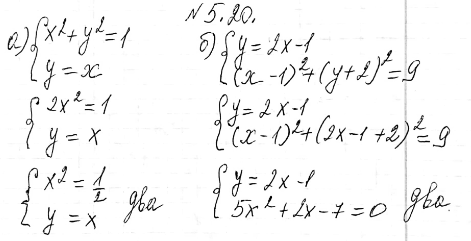 № 5.20.
а) { x² + y² = 1
y = x
{ 2x² = 1
y = x
{ x² = 1/2
y = x два
б) { y = 2x - 1
(x - 1)² + (y + 2)² = 9
{ y = 2x - 1
(x - 1)² + (2x - 1 + 2)² = 9
{ y = 2x - 1
5x² + 2x - 7 = 0 два